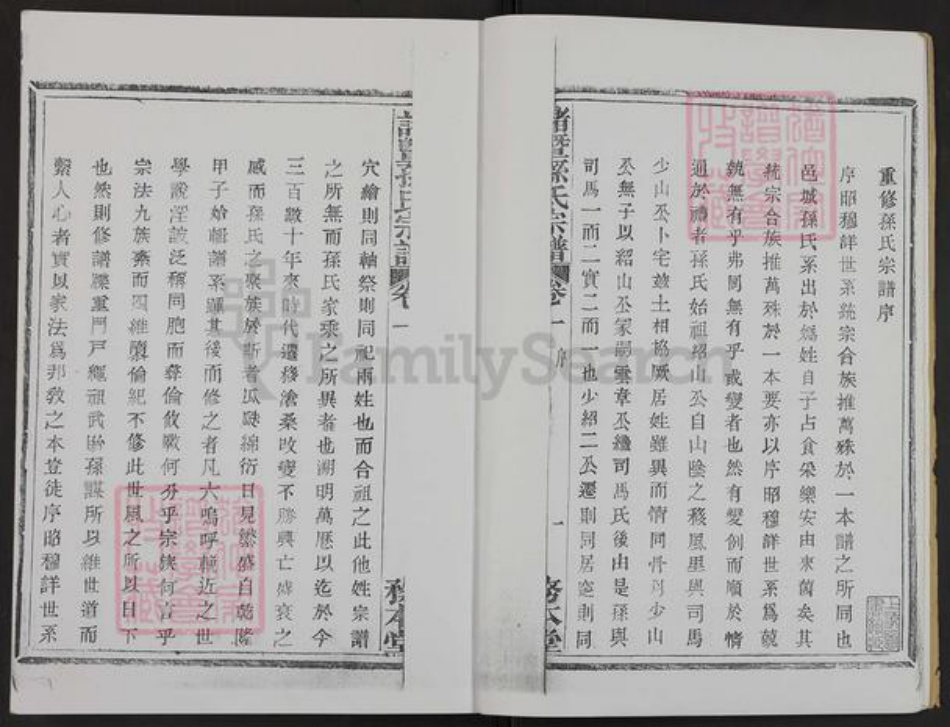 重修孫氏宗譜序
序昭穆詳世系統宗合族推萬殊於一本譜之所同也
邑城孫氏系出於媯姓自子占食采樂安由來舊矣其
統宗合族推萬殊於一本要亦以序昭穆詳世系爲兢
兢無有乎弗同無有乎或變者也然有變例而順於情
通於禮者孫氏始祖紹山公自山陰之移風里與司馬
少山公卜宅茲土相協厥居姓雖異而情同骨肉少山
公無子以紹山公冢嗣雲章公繼司馬氏後由是孫與
司馬一而二實二而一也少紹二公遷則同居窆則同
諸暨孫氏宗譜 卷一 序 一 務本堂
穴繪則同軸祭則同祀兩姓也而合祖之此他姓宗譜
之所無而孫氏家乘之所異者也溯明萬厯以迄於今
三百數十年來時代遷移滄桑改變不勝興亡盛衰之
感而孫氏之聚族於斯者瓜瓞綿衍日見繁盛自乾隆
甲子始輯譜系踵其後而修之者凡六嗚呼輓近之世
學說淫詖泛稱同胞而彝倫攸斁何分乎宗族何言乎
宗法九族紊而四維隳倫紀不修此世風之所以日下
也然則修譜牒重門戶繩祖武貽孫謀所以維世道而
繫人心者實以家法爲邦敎之本豈徒序昭穆詳世系
諸暨孫氏宗譜 卷一 務本堂
FamilySearch